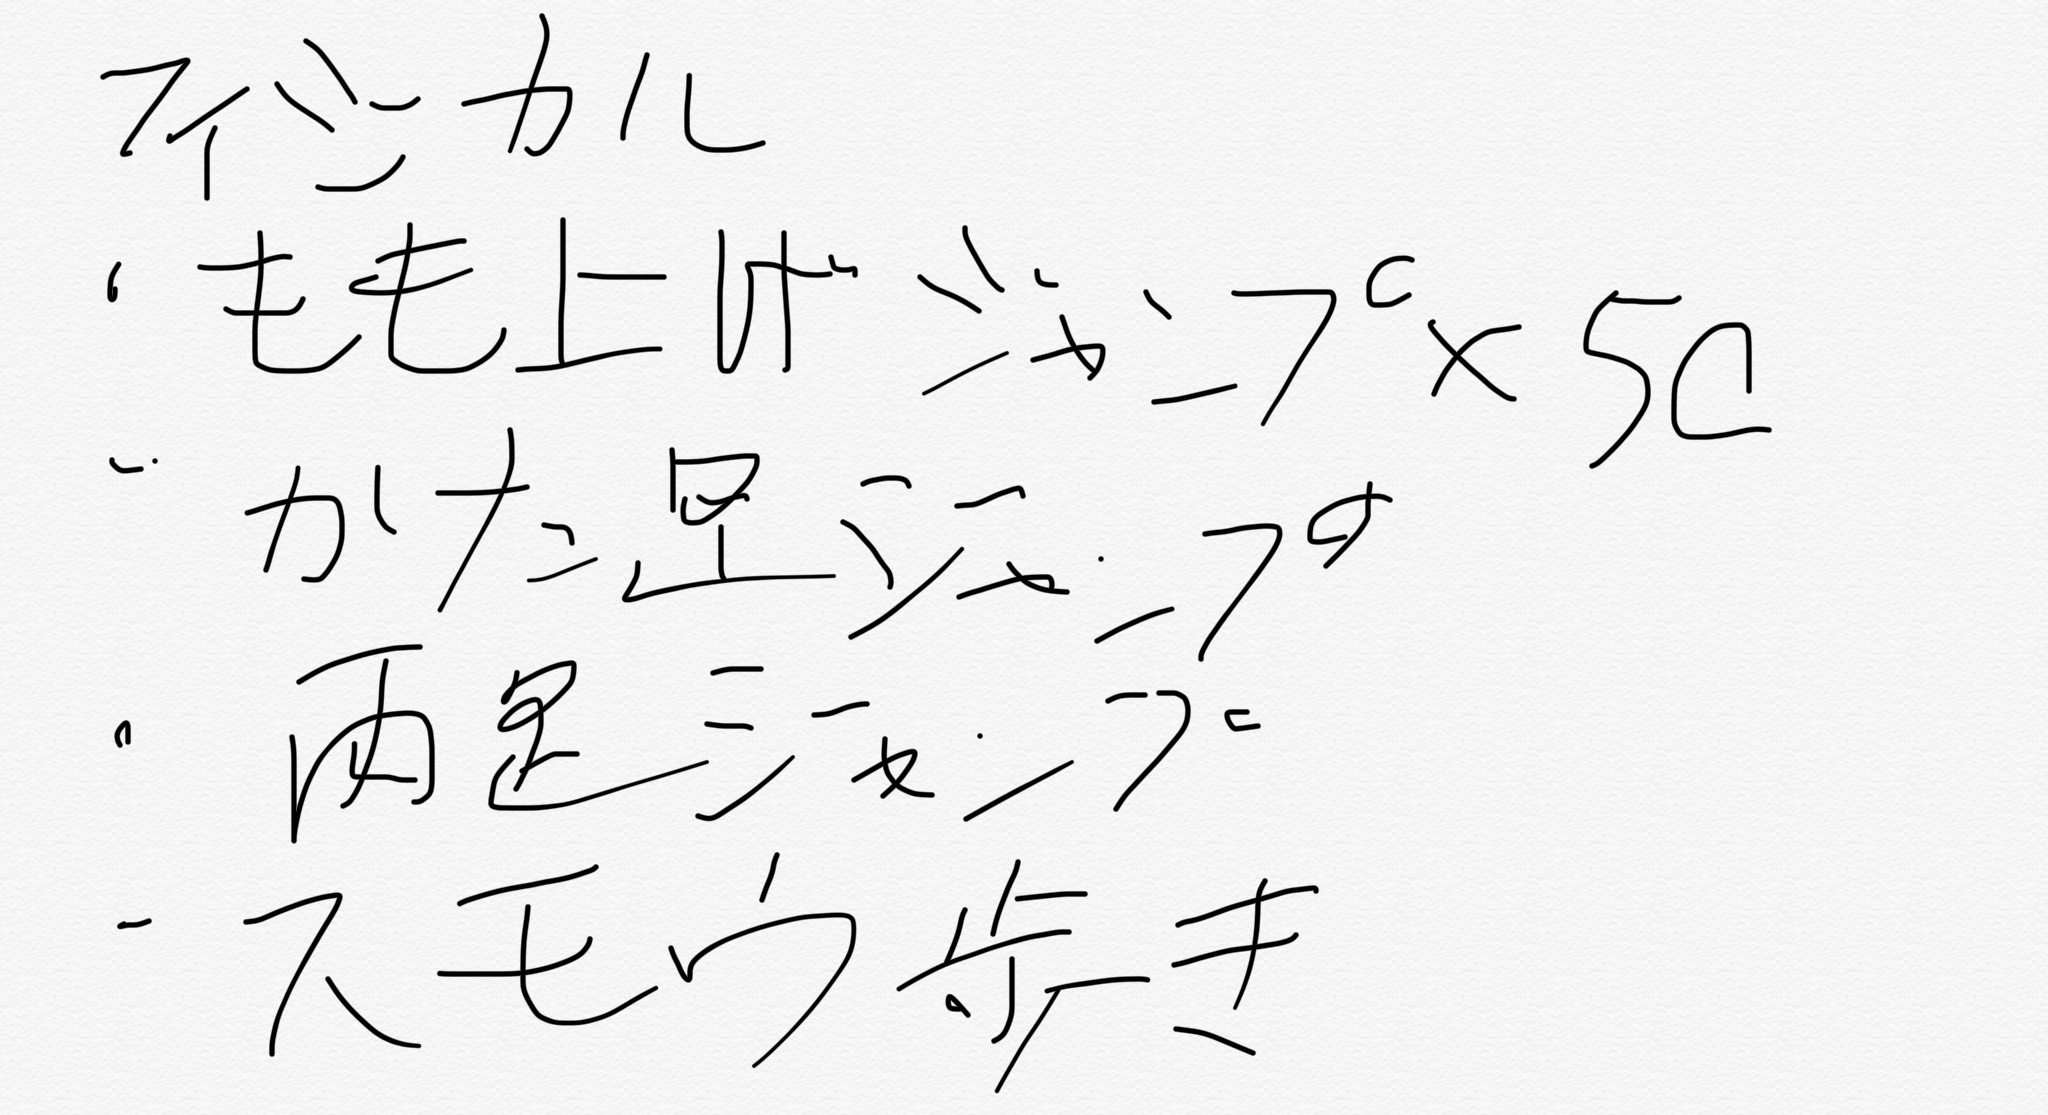 フィジカル
・もも上げジャンプ×50
・かた足ジャンプ
・両足ジャンプ
・スモウ歩き